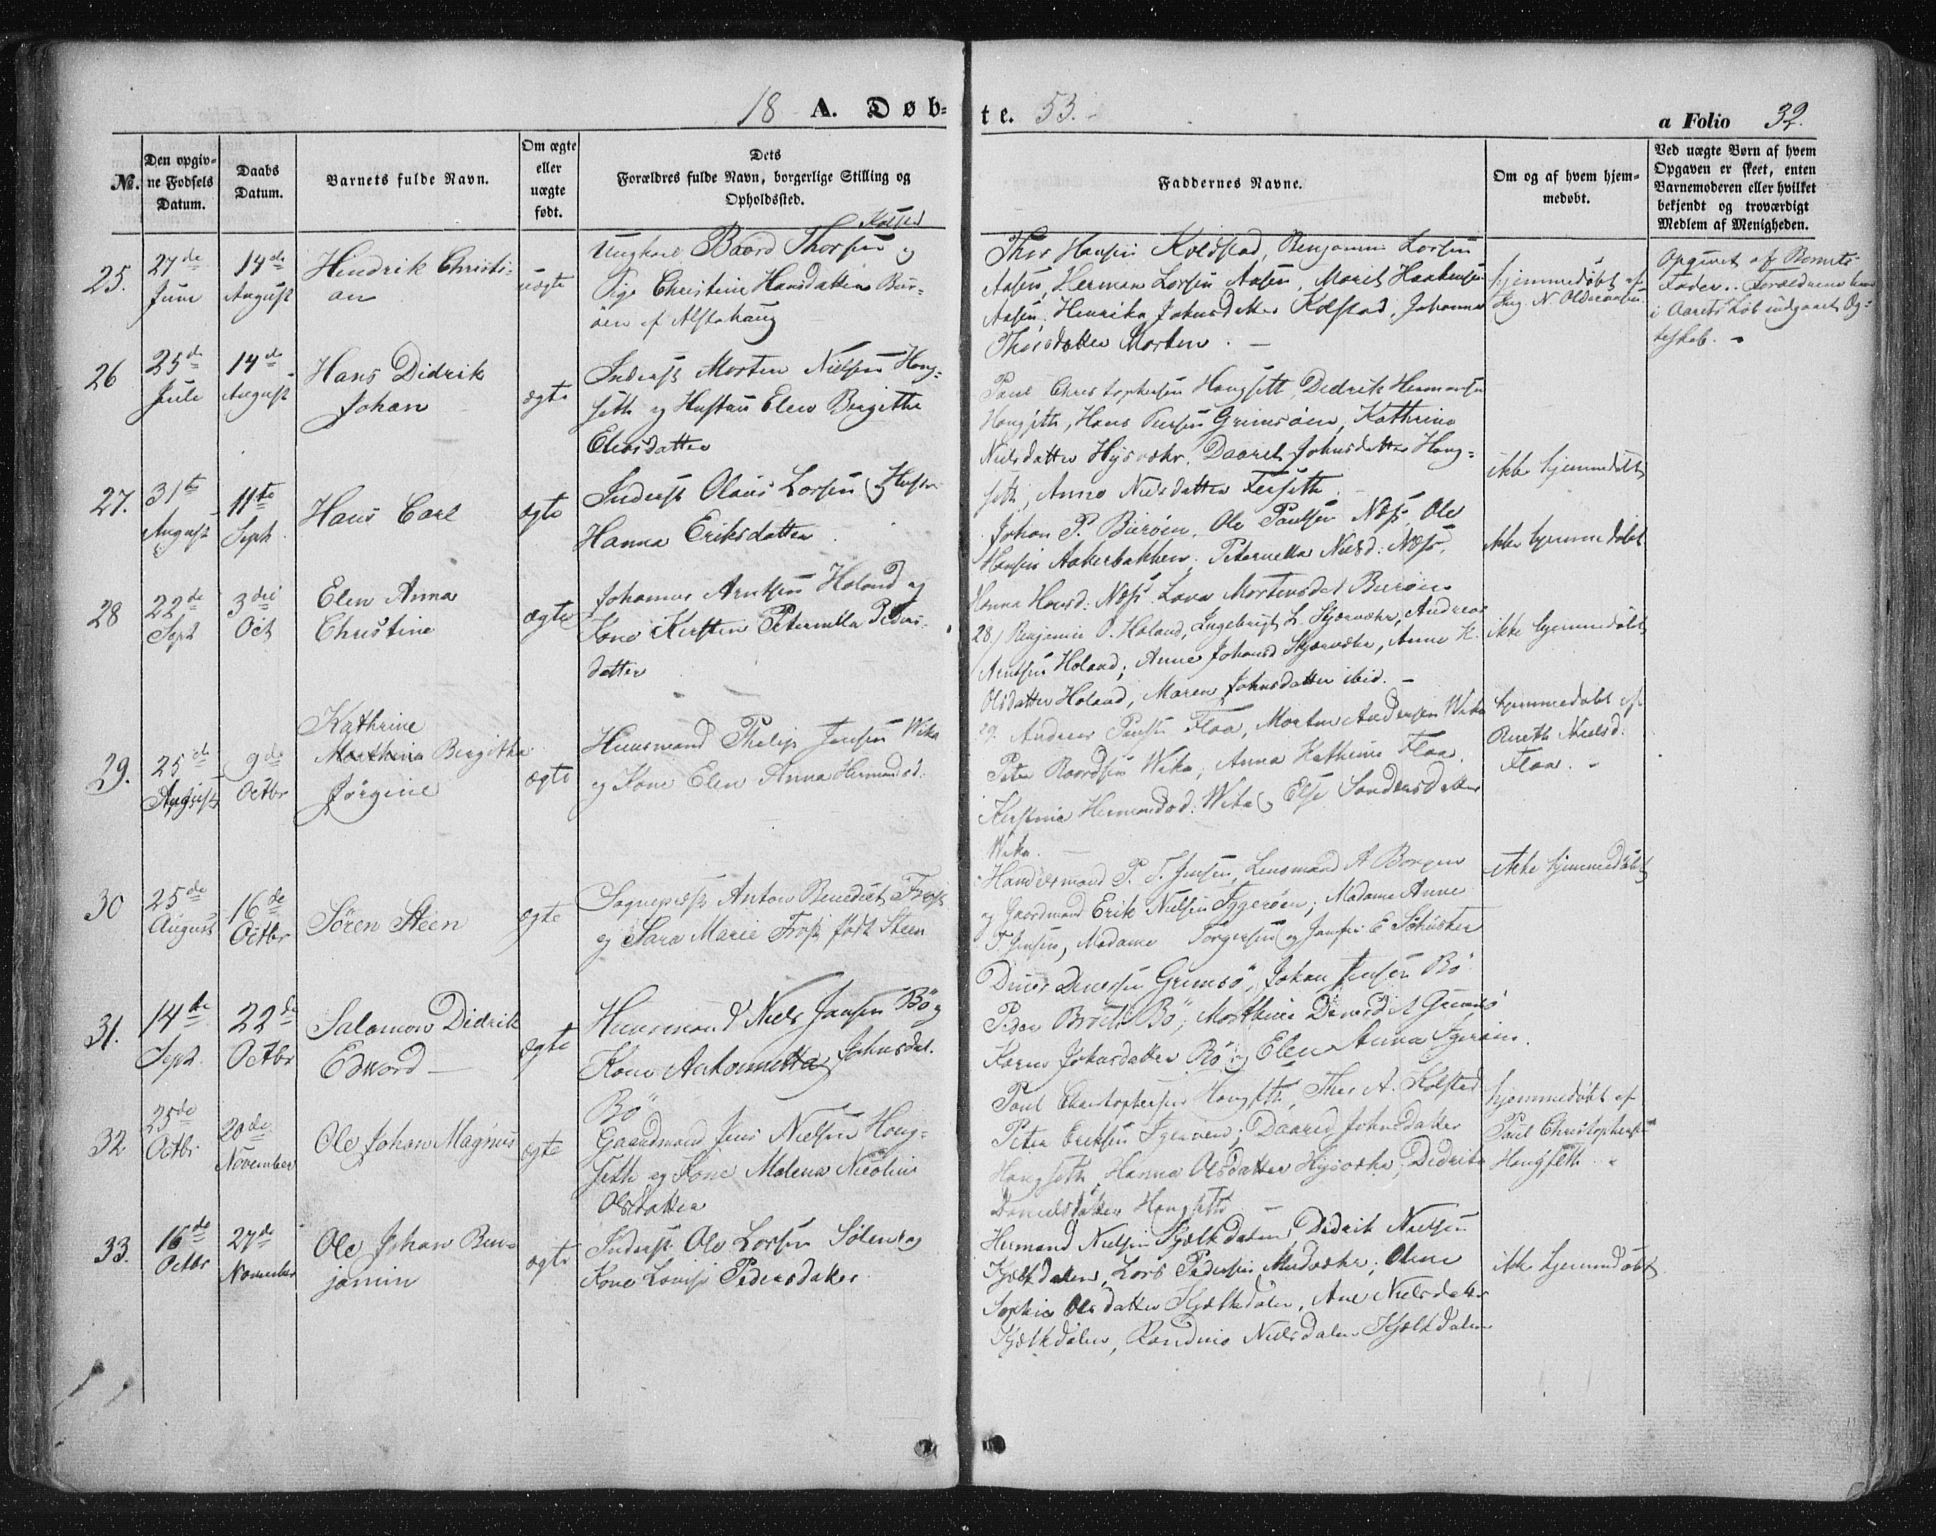 18 A. Døb-
te. 53.
a Folio 32.
No.
Den opgiv-
ne Fødsels
Datum.
Daabs
Datum.
Barnets fulde Navn.
Om ægte
eller
uægte
født.
Dets
Forældres fulde Navn, borgerlige Stilling og
Opholdssted.
Faddernes Navne.
Om og af hvem hjem-
medøbt.
Ved uægte Børn af hvem
Opgaven er skeet, enten
Barnemoderen eller hvilket
bekjendt og troværdigt
Medlem af Menigheden.
25.
27de
Juni
14de
August
Hindrik Christi-
an
uægte
Kolsted
Ungkarl Baard Thorsen og
Pige Christine Hansdatter Bur-
öen af Alstahaug
Thor Hansen Koldstad, Benjamin Larsen
Aasen, Herman Larsen Aasen, Maret Haakensen
Aasen, Henrika Johnsdatter Kolstad, Johanna
Thorsdatter Morten. -
hjemmedøbt af
N. Olderaasen
Opgivet af Barnets
Fader. Forældrene
i Aarets Løb indgaaet Æg-
teskab. -
26
25de
Juli
14de
August
Hans Didrik
Johan
ægte
Inderst Morten Nielsen Hong-
seth og Hustru Elen Birgithe
Eliasdatter
Paul Christophersen Hongseth, Didrik Hermansen
Hongseth, Hans Grimsöen, Kathrine
Nielsdatter Hysvær, Daaret Johnsdatter Hong-
seth, Anne Nielsdatter Forseth.
ikke hjemmedøbt
27.
31te
August
11te
Sept.
Hans Carl
ægte
Inderst Olaus Larsen og Hustru
Hanna Eriksdatter
Johan P. Buröen, Ole Paulsen Næss, Ole
Hansen Aakerbakken, Peternella Nielsd: Næss,
Hanna Hansd: Næss. Lava Mortensdat Buröen
ikke hjemmedøbt
28
22de
Sept
3die
Oct
Elen Anna
Christine
ægte
Johannes Arntsen Holand og
Kone Kirsten Peternella Peders-
datter
28/ Benjamin O. Holand, Ingebrigt L. Skjærvær, Andreas
Arntsen Holand; Anne Johansd Skjærvær, Anne H.
Olsdatter Holand, Maren Johnsdatter ibid. -
ikke hjemmedøbt
29.
25de
August
9de
Octbr
Kathrine
Marthina Bergitha
Jörgine
ægte
Huusmand Philip Jensen Wika
og Kone Elen Anna Hermansd.
29. Andreas Flaa, Morten Andersen Wika
Peter Baardsen Wika, Anna Kathrine Flaa,
Kerstina Hermansd: Wika og Else Sandersdatter
Wika. -
hjemmedøbt af
Nielsd.
Flaa. -
30
25de
August
16de
Octbr
Sören Steen
ægte
Sognepræst Anton Benedict Frost
og Sara Marie Frost født Steen
Handelsmand P. T. Jensen, Lensmand A Borgen
og Gaardmand Erik Nielsen Iggeröen; Madame Anne
T. Jensen, Madame Torgersen og Jomfru E Schuster
ikke hjemmedøbt
31.
14de
Sept.
22de
Octbr
Salamon Didrik
Edward
ægte
Huusmand Niels Jansen Bö og
Kone Antonette Johnsdat.
Bö
Grimsö, Johan Jensen Bö
Peder Bö, Grimsö
Karen Johansdatter Bö og Elen Anna Igeröen.
32
25de
Octbr
20de
November
Ole Johan Magnus
ægte
Gaardmand Jens Nielsen Hong-
seth og Kone Malena Nicoline
Olsdatter
Paul Christophersen Hongseth, Thor A. Kolsted
Peter Eriksen Igeröen; Daaret Johnsdatter
Hongseth, Hanna Olsdatter Hysvær, Didrika
Danielsdatter Hongseth -
hjemmedøbt af
Paul Christophersen
Hongseth. -
33.
16de
Octbr
27de
November
Ole Johan Ben-
jamin
ægte
Inderst Ole Larsen Sölen og
Kone Lovise Pedersdatter
Hermand Nielsen Kjælkdalen, Didrik Nielsen
Kjelkdalen, Lars Pedersen; Oline
Sophie Olsdatter Kjælkdalen, Ane Nielsdatter
Kjælkdalen, Nielsdatter Kjelkdalen
ikke hjemmedøbt